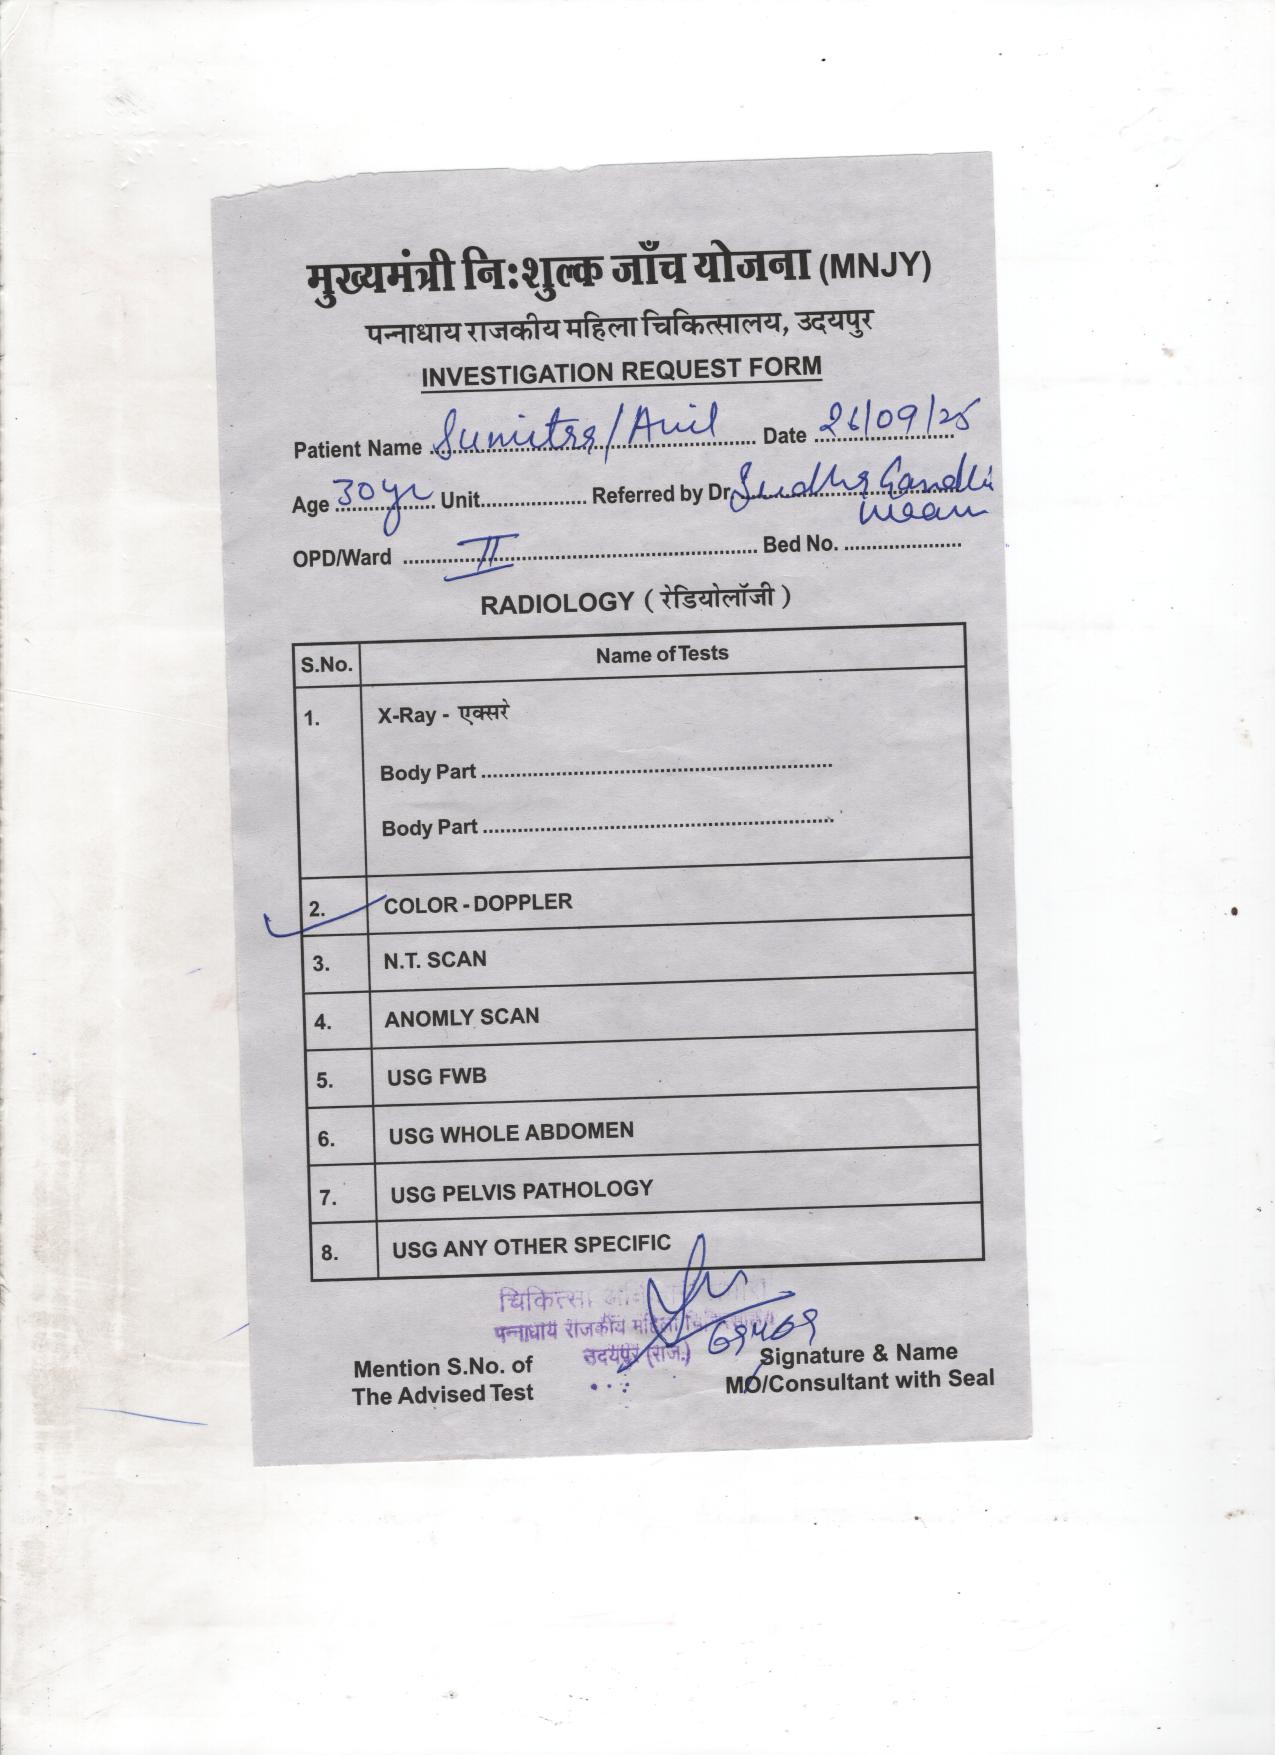 मुख्यमंत्री निःशुल्क जाँच योजना (MNJY)
पन्नाधाय राजकीय महिला चिकित्सालय, उदयपुर
INVESTIGATION REQUEST FORM
Patient Name Sumitra/Anil Date 26/09/25
Age 30yr Unit.................. Referred by Dr Sudha Gandhi
OPD/Ward II Bed No. ....................
RADIOLOGY ( रेडियोलॉजी )
S.No. Name of Tests
1. X-Ray - एक्सरे
Body Part ............................................................
Body Part ............................................................
2. COLOR - DOPPLER
3. N.T. SCAN
4. ANOMLY SCAN
5. USG FWB
6. USG WHOLE ABDOMEN
7. USG PELVIS PATHOLOGY
8. USG ANY OTHER SPECIFIC
चिकित्सा
पन्नाधाय राजकीय महिला चिकित्सालय
उदयपुर (राज.)
Mention S.No. of
The Advised Test
Signature & Name
MO/Consultant with Seal